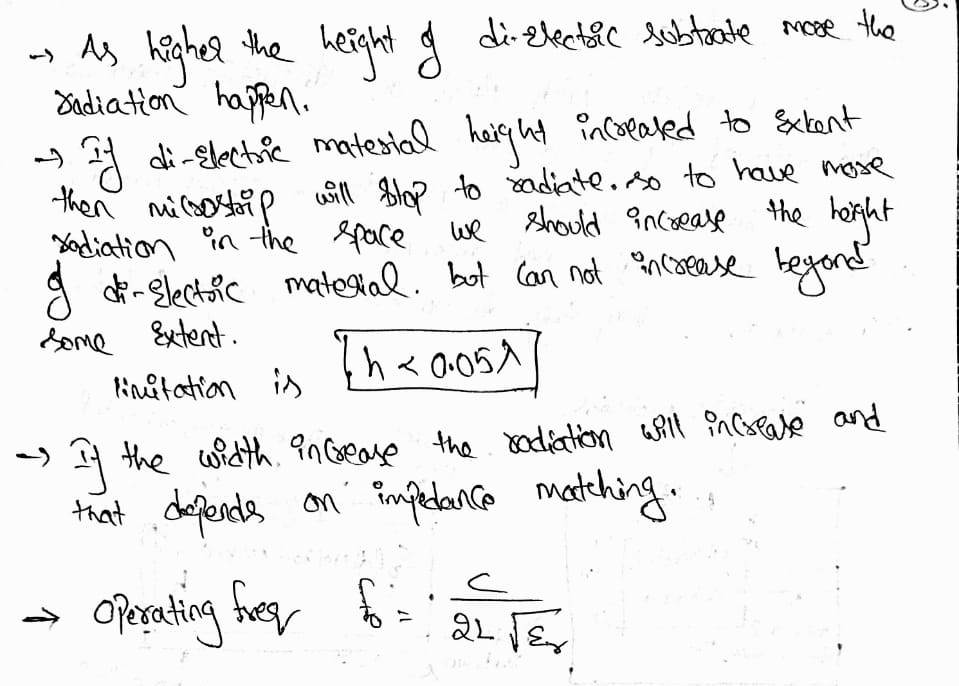 → As higher the height of di-electric subtrate more the
radiation happen.
→ If di-electric material height increased to extent
then microstrip will stop to radiate. so to have more
radiation in the space we should increase the height
of di-electric material. but can not increase beyond
some extent.
limitation is h < 0.05λ
→ If the width increase the radiation will increase and
that depends on impedance matching.
→ operating freq f₀ = c / 2L √εr